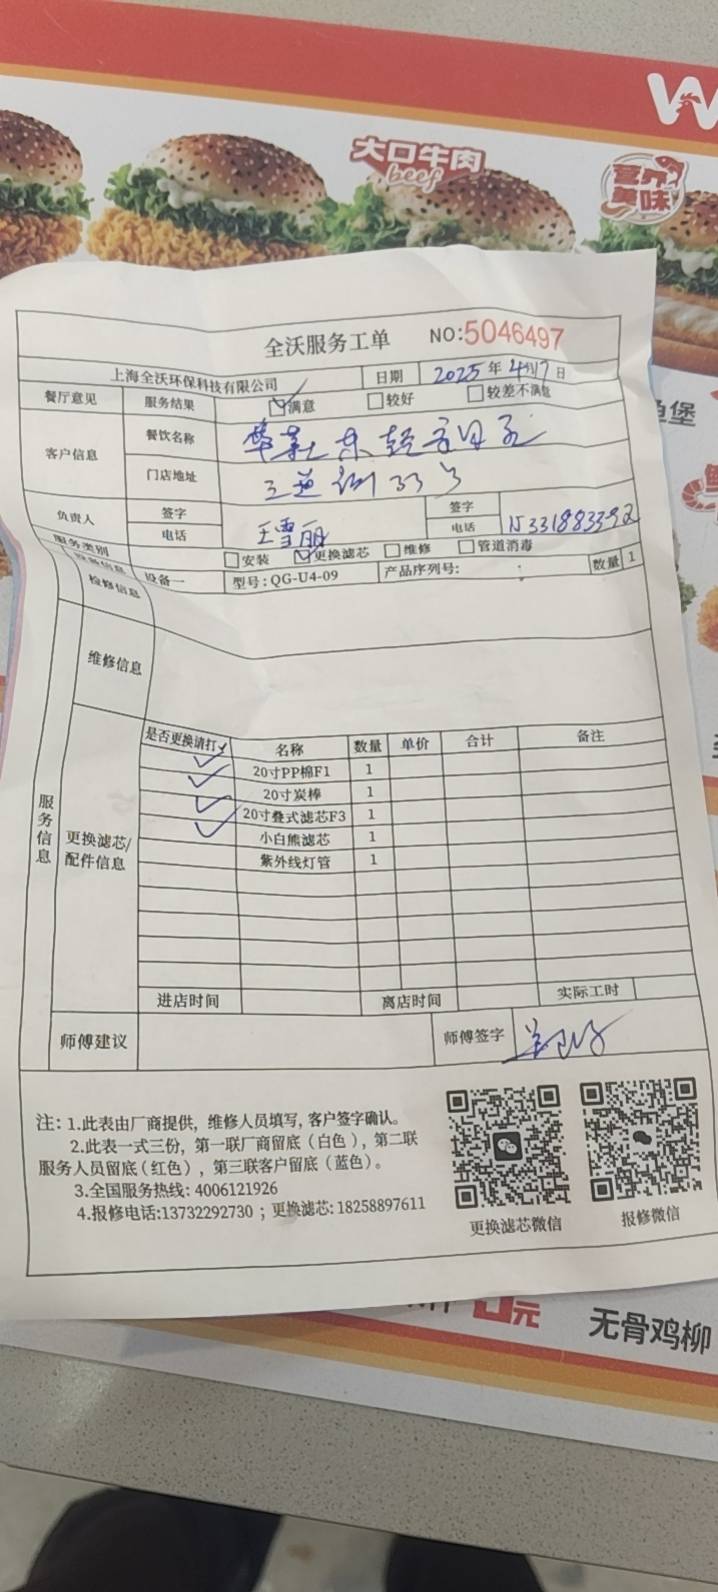 W
大口牛肉
beef
营养
美味
鱼堡
全沃服务工单 NO:5046497
上海全沃环保科技有限公司 日期 2025年4月17日
餐厅意见 服务结果 满意 较好 较差不满意
客户信息 餐饮名称
门店地址 33号
负责人 签字 王雪丽 签字
电话 电话 15331883392
服务类别 安装 更换滤芯 维修 管道消毒
设备信息 设备一 型号:QG-U4-09 产品序列号: 数量 1
检修信息
维修信息
服务信息
更换滤芯/配件信息
是否更换请打√ 名称 数量 单价 合计 备注
20寸PP棉F1 1
20寸炭棒 1
20寸叠式滤芯F3 1
小白熊滤芯 1
紫外线灯管 1
进店时间 离店时间 实际工时
师傅建议 师傅签字
注：1.此表由厂商提供，维修人员填写，客户签字确认。
2.此表一式三份，第一联厂商留底（白色），第二联
服务人员留底（红色），第三联客户留底（蓝色）。
3.全国服务热线：4006121926
4.报修电话:13732292730；更换滤芯:18258897611
更换滤芯微信 报修微信
元
无骨鸡柳